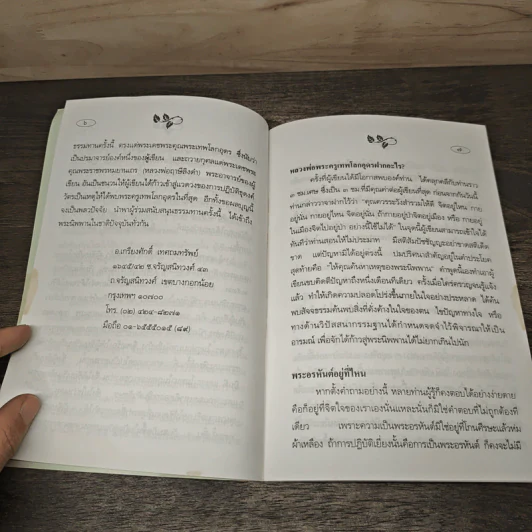 ๖
ธรรมทานครั้งนี้ ตรงแด่พระเดชพระคุณพระเทพโลกอุดร ซึ่งนับว่า
เป็นปรมาจารย์องค์หนึ่งของผู้เขียน และถวายกุศลแด่พระเดชพระ
คุณพระราชพรหมยานเถร (หลวงพ่อฤาษีลิงดำ) พระอาจารย์ของผู้
เขียน อันเป็นชนวนให้ผู้เขียนได้ก้าวเข้าสู่แนวตรงของการปฏิบัติธุดงค์
วัตรเป็นเหตุให้ได้พบพระครูเทพโลกอุดรในที่สุด อีกทั้งขอผลบุญนี้
จงเป็นพลวปัจจัย นำพาผู้ร่วมสนับสนุนธรรมทานครั้งนี้ ได้เข้าถึง
พระนิพพานในชาติปัจจุบันทั่วกัน
อ.เกรียงศักดิ์ เทศถมทรัพย์
ซ.จรัญสนิทวงศ์ ๔๓
ถ.จรัญสนิทวงศ์ เขตบางกอกน้อย
กรุงเทพฯ ๑๐๗๐๐
โทร. (๐๒)
มือถือ
๗
หลวงพ่อพระครูเทพโลกอุดรฝากอะไร?
ครั้งที่ผู้เขียนได้มีโอกาสพบองค์ท่าน ได้คลุกคลีกับท่านราว
๓ ชม.เศษ ซึ่งเป็น ๓ ชม.ที่มีคุณค่าต่อผู้เขียนที่สุด ก่อนจากกันวันนี้
ท่านกล่าววาจาฝากไว้ว่า "คุณควรระวังสำรวมให้ดี จิตอยู่ไหน กาย
อยู่นั่น กายอยู่ไหน จิตอยู่นั่น ถ้ากายอยู่ป่าจิตอยู่เมือง หรือ กายอยู่
ในเมืองจิตไปอยู่ป่า อย่างนี้ใช้ไม่ได้" ในจุดนี้ผู้เขียนสามารถเข้าใจได้
ทันทีว่าท่านสอนให้ไม่ประมาท มีสติสัมปชัญญะอย่าขาดสติเด็ด
ขาด แต่ปัญหามิได้อยู่ตรงนี้ ปมปริศนาสำคัญอยู่ในคำประโยค
สุดท้ายคือ "ให้คุณค้นหาเหตุของพระนิพพาน" คำพูดนี้เองทำเอาผู้
เขียนขบคิดตีปัญหาถึงหนึ่งเดือนทีเดียว ครั้งเมื่อใคร่ครวญจนรู้แจ้ง
แล้ว ทำให้เกิดความปลอดโปร่งขึ้นภายในใจอย่างประหลาด ได้ค้น
พบสัจธรรมต้นพบสิ่งที่ตั้งค้างในใจของตน ไขปัญหาทางใจ หรือ
ทางด้านวิปัสสนากรรมฐานได้กำหนดจดจำไว้พิจารณาให้เป็น
อารมณ์ เพื่อจักได้ก้าวสู่พระนิพพานได้ไม่ยากเกินไปนัก
พระอรหันต์อยู่ที่ไหน
หากตั้งคำถามอย่างนี้ หลายท่านผู้รู้ก็คงตอบได้อย่างง่ายดาย
คือก็อยู่ที่จิตใจของเราเองนั่นแหละนั่นก็มิใช่คำตอบที่ไม่ถูกต้องที
เดียว เพราะความเป็นพระอรหันต์มิใช่อยู่ที่โกนศีรษะแล้วห่ม
ผ้าเหลือง ถ้าการปฏิบัติเยี่ยงนั้นคือการเป็นพระอรหันต์ ก็คงจะไม่มี